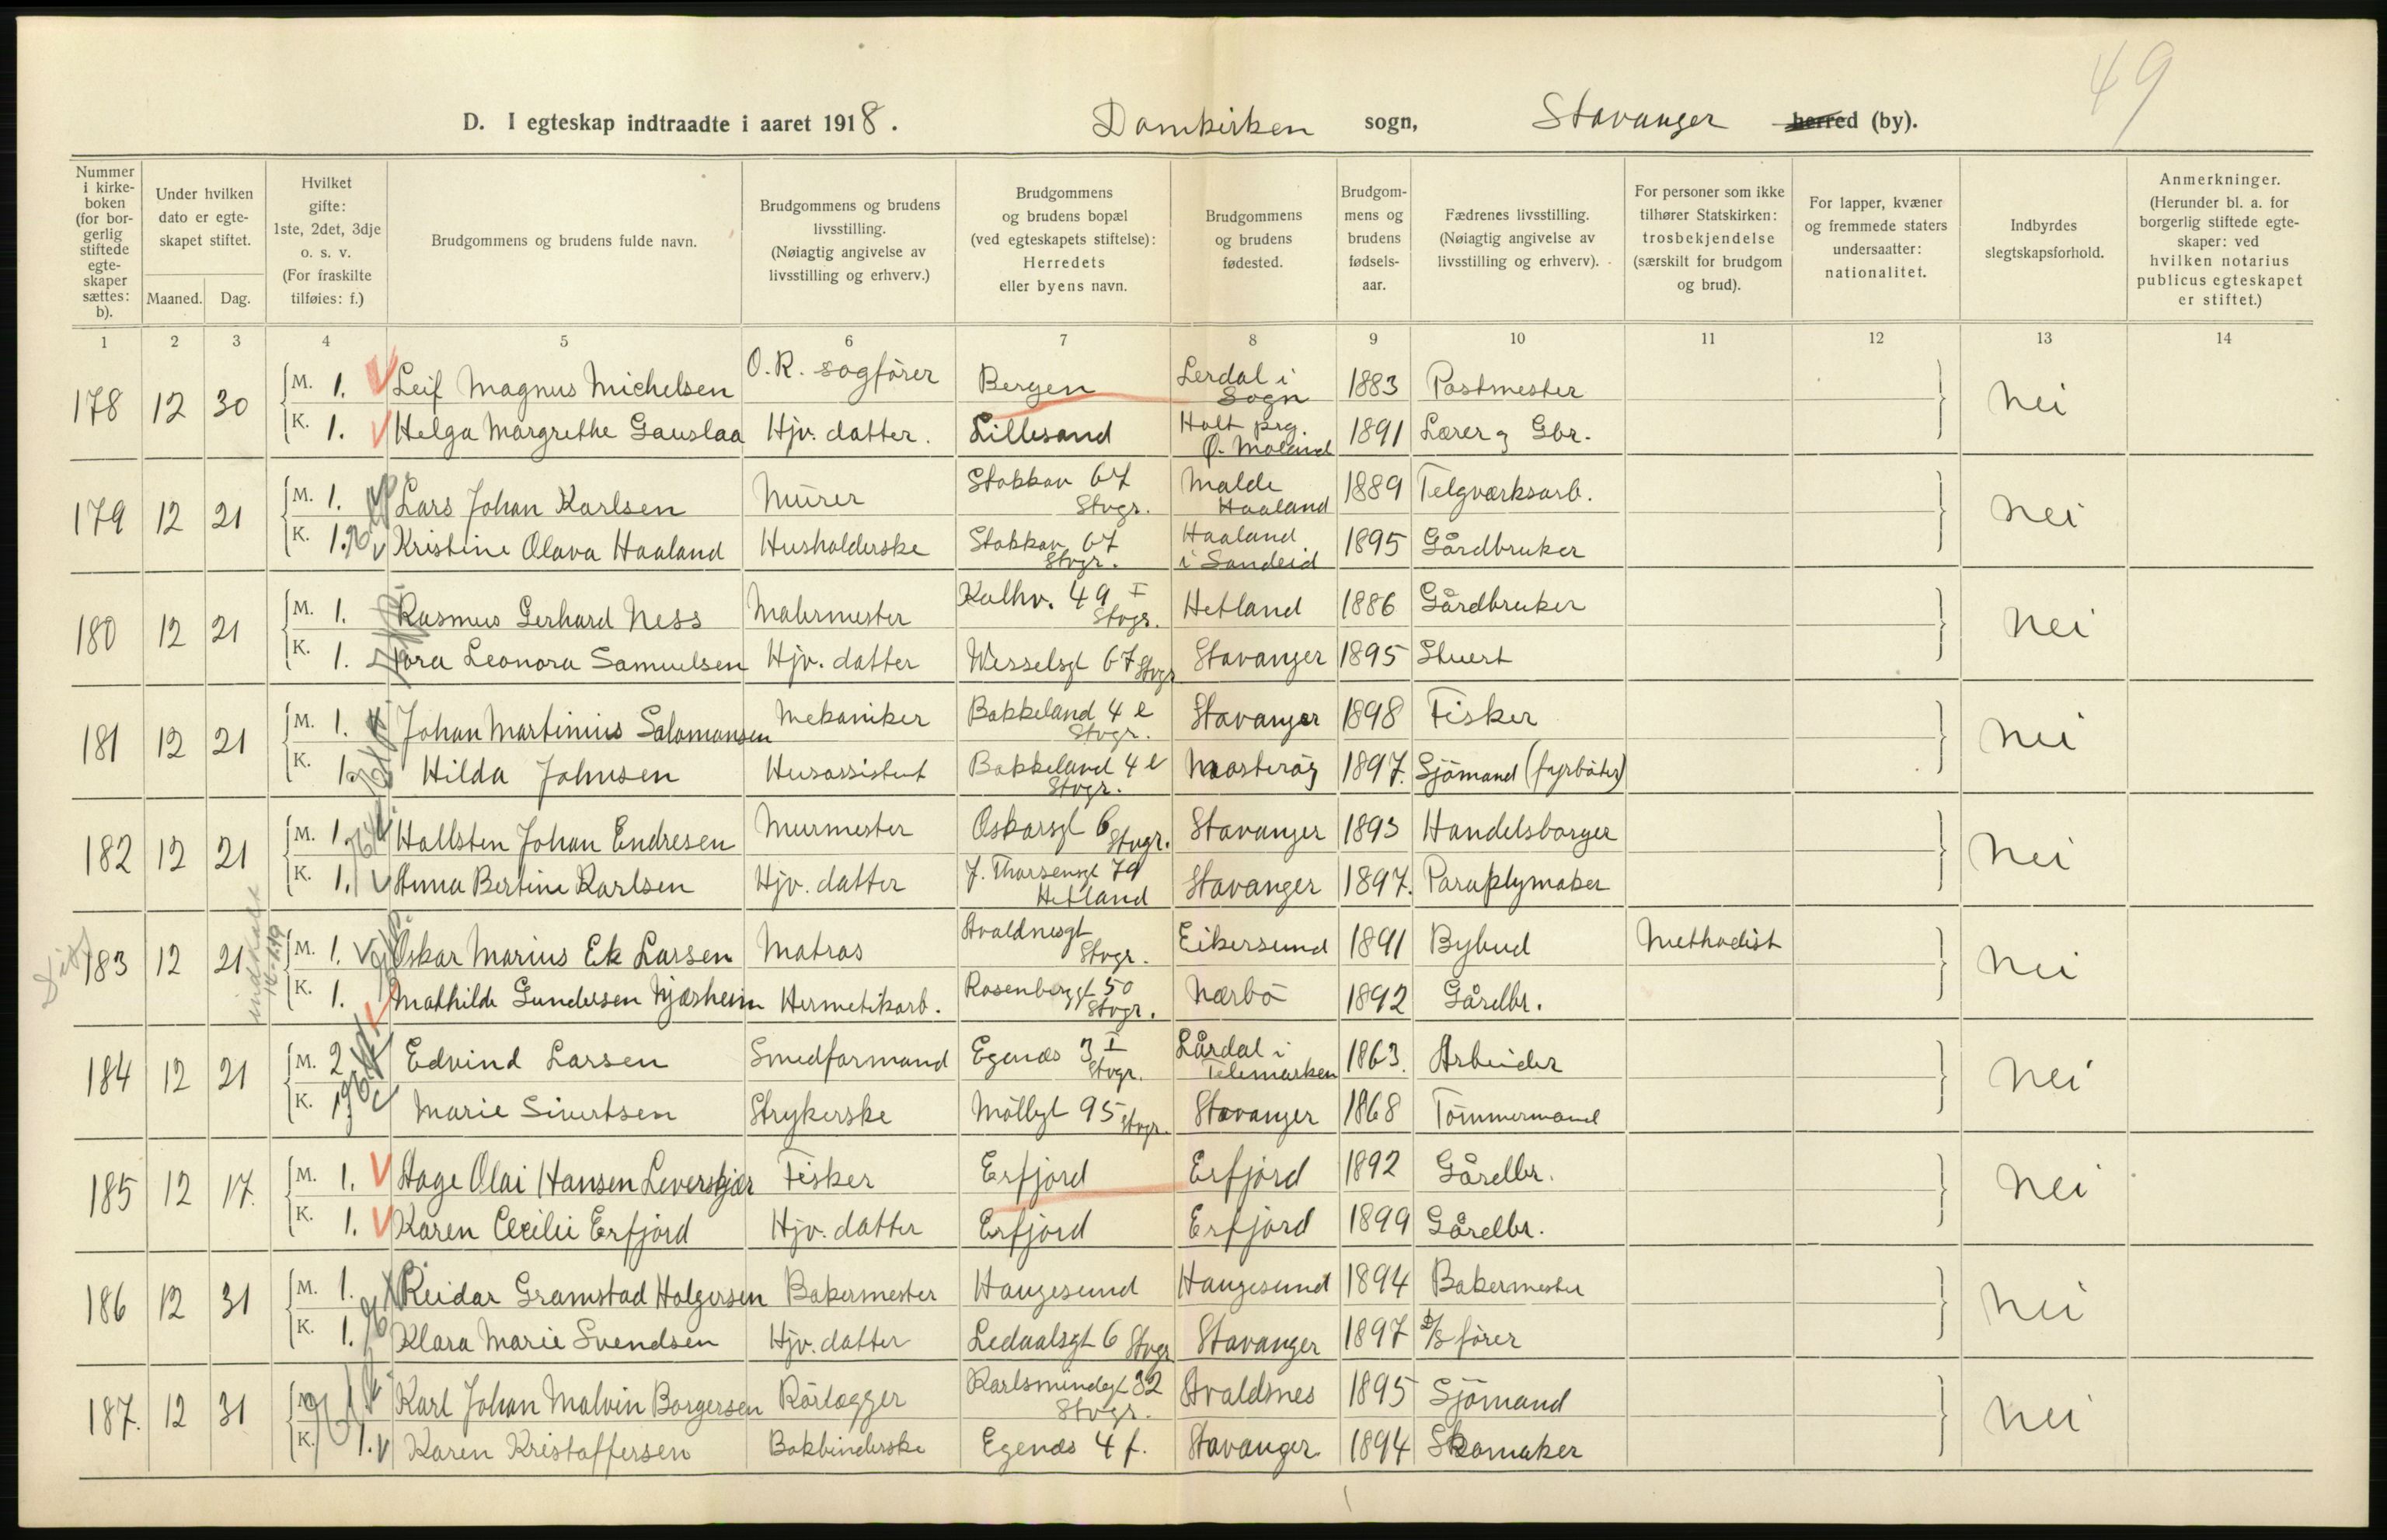 49
D. I egteskap indtraadte i aaret 1918. Domkirken sogn, Stavanger herred (by).
Nummer i kirke-boken (for bor-gerlig stiftede egte-skaper sættes: b).
Under hvilken dato er egte-skapet stiftet.
Maaned. Dag.
Hvilket gifte: 1ste, 2det, 3dje o. s. v. (For fraskilte tilføies: f.)
Brudgommens og brudens fulde navn.
Brudgommens og brudens livsstilling. (Nøiagtig angivelse av livsstilling og erhverv.)
Brudgommens og brudens bopæl (ved egteskapets stiftelse): Herredets eller byens navn.
Brudgommens og brudens fødested.
Brudgom-mens og brudens fødsels-aar.
Fædrenes livsstilling. (Nøiagtig angivelse av livsstilling og erhverv).
For personer som ikke tilhører Statskirken: trosbekjendelse (særskilt for brudgom og brud).
For lapper, kvæner og fremmede staters undersaatter: nationalitet.
Indbyrdes slegtskapsforhold.
Anmerkninger. (Herunder bl. a. for borgerlig stiftede egte-skaper: ved hvilken notarius publicus egteskapet er stiftet.)
1 2 3 4 5 6 7 8 9 10 11 12 13 14
178 12 30 M. 1. Leif Magnus Michelsen O.R. sagfører Bergen Lerdal i Sogn 1883 Postmester nei
K. 1. Helga Margrethe Gauslaa Hjv. datter. Lillesand Holt prg. Ø. Moland 1891 Lærer og Gbr.
179 12 21 M. 1. Lars Johan Karlsen Murer Stokkav 67 Stvgr. Malde Haaland 1889 Telgværksarb. nei
K. 1. Kristine Olava Haaland Husholderske Stokkav 67 Stvgr. Haaland i Sandeid 1895 Gårdbruker
180 12 21 M. 1. Rasmus Gerhard Ness Malermester Kalhv. 49 I Stvgr. Hetland 1886 Gårdbruker nei
K. 1. Tora Leonora Samuelsen Hjv. datter Wesselsgt 67 Stvgr Stavanger 1895 Stuert
181 12 21 M. 1. Johan Martinius Salomonsen Mekaniker Bakkeland 4 e Stvgr. Stavanger 1898 Fisker nei
K. 1. Hilda Johnsen Husassistent Bakkeland 4 e Stvgr. Mosterøy 1897. Sjömand (fyrböter)
182 12 21 M. 1. Hallsten Johan Endresen Murmester Oskarsgt 6 Stvgr. Stavanger 1893 Handelsborger nei
K. 1. Anna Bertine Karlsen Hjv. datter J. Thorsensgt 79 Hetland Stavanger 1897. Paraplymaker
183 12 21 M. 1. Oskar Marius Ek Larsen Matros Avaldnesgt Stvgr. Eikersund 1891 Bybud Methodist nei
K. 1. Mathilde Gundersen Njærheim Hermetikarb. Rosenberggt 50 Stvgr. Nærbö 1892 Gårdbr.
184 12 21 M. 2 Edvind Larsen Smedformand Egenæs 3 I Stvgr. Lårdal i Telemarken 1863. Arbeider nei
K. 1. Marie Sivertsen Strykerske Möllegt 95 Stvgr. Stavanger 1868 Tömmermand
185 12 17. M. 1. Aage Olai Hansen Leverskjær Fisker Erfjord Erfjord 1892 Gårdbr. nei
K. 1. Karen Cecilie Erfjord Hjv. datter Erfjord Erfjord 1899 Gårdbr.
186 12 31 M. 1. Reidar Gramstad Holgersen Bakermester Haugesund Haugesund 1894 Bakermester nei
K. 1. Klara Marie Svendsen Hjv. datter Ledaalsgt 6 Stvgr Stavanger 1897 D/S förer
187. 12 31 M. Karl Johan Malvin Borgersen Rörlægger Karlsmindegt 32 Stvgr. Avaldsnes 1895 Sjömand nei
K. 1. Karen Kristoffersen Bokbinderske Egenæs 4 f. Stavanger 1894 Skomaker